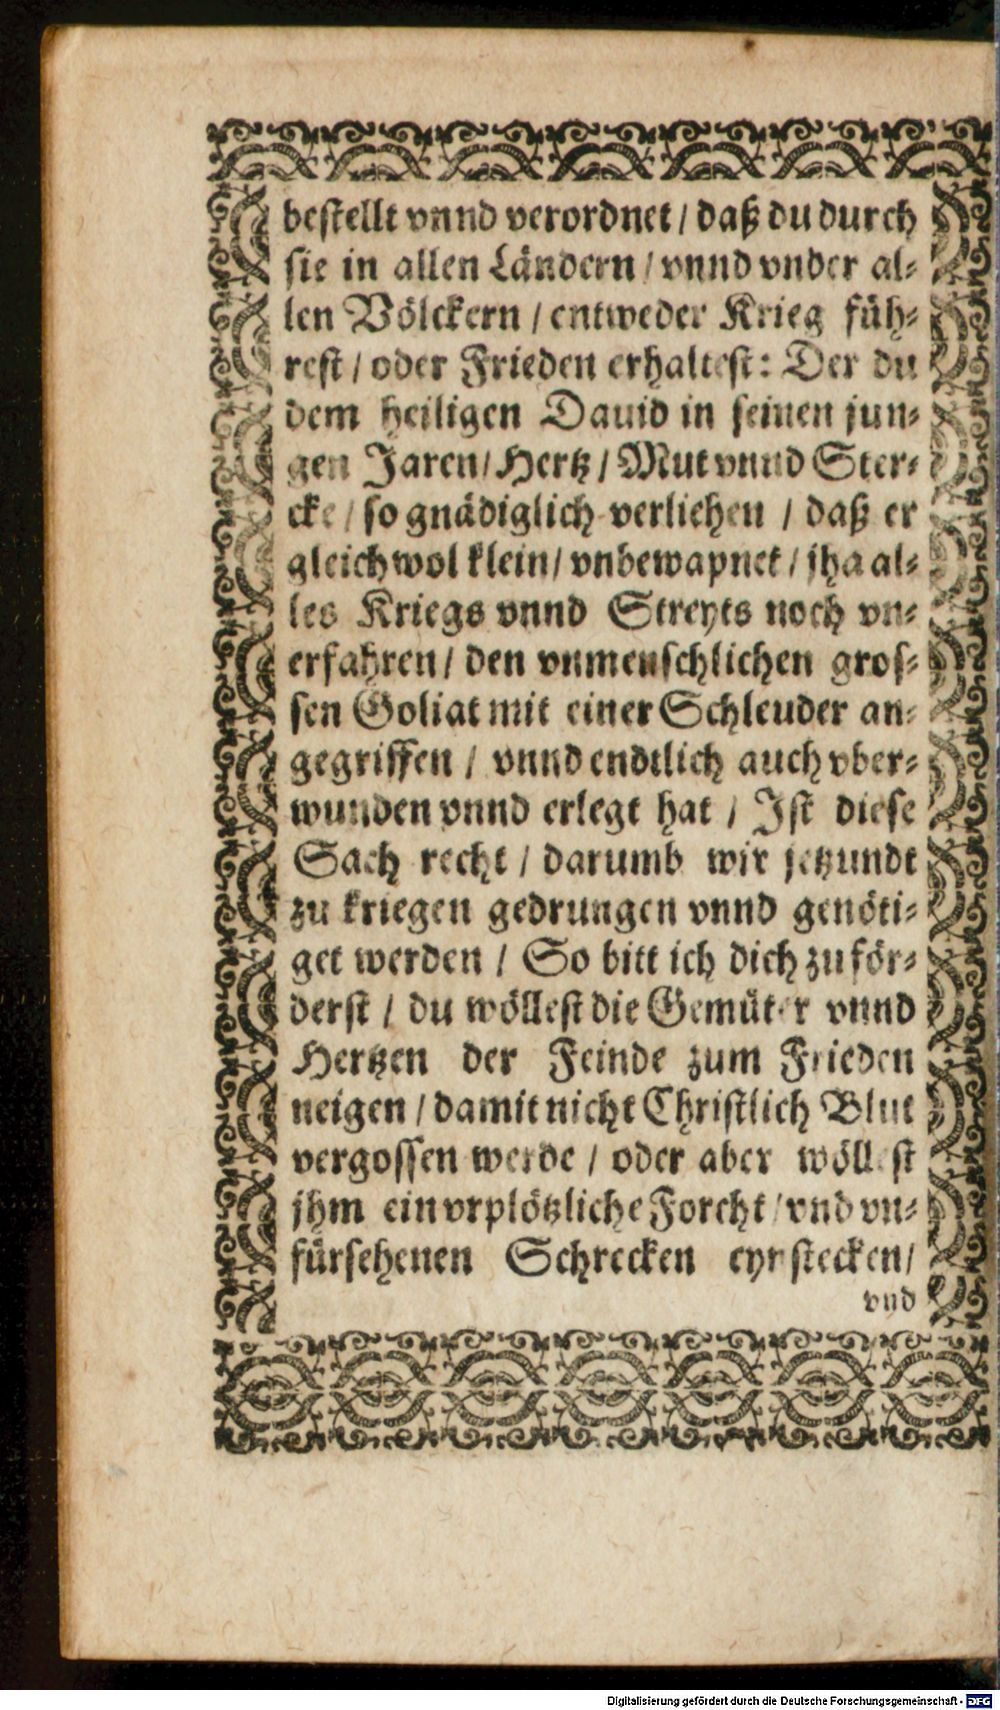 bestellt vnnd verordnet / daß du durch
sie in allen Ländern / vnnd vnder al⸗
len Völckern / entweder Krieg füh⸗
rest / oder Frieden erhaltest: Der du
dem heiligen Dauid in seinen jun⸗
gen Jaren / Hertz / Mut vnnd Ster⸗
cke / so gnädiglich verliehen / daß er
gleichwol klein / vnbewapnet / jha al⸗
les Kriegs vnnd Streyts noch vn⸗
erfahren / den vnmenschlichen gros⸗
sen Goliat mit einer Schleuder an⸗
gegriffen / vnnd endtlich auch vber⸗
wunden vnnd erlegt hat / Ist diese
Sach recht / darumb wir jetzundt
zu kriegen gedrungen vnnd genöti⸗
get werden / So bitt ich dich zuför⸗
derst / du wöllest die Gemüter vnnd
Hertzen der Feinde zum Frieden
neigen / damit nicht Christlich Blut
vergossen werde / oder aber wöllest
jhm ein vrplötzliche Forcht / vnd vn⸗
fürsehenen Schrecken eynstecken /
vnd
Digitalisierung gefördert durch die Deutsche Forschungsgemeinschaft - DFG